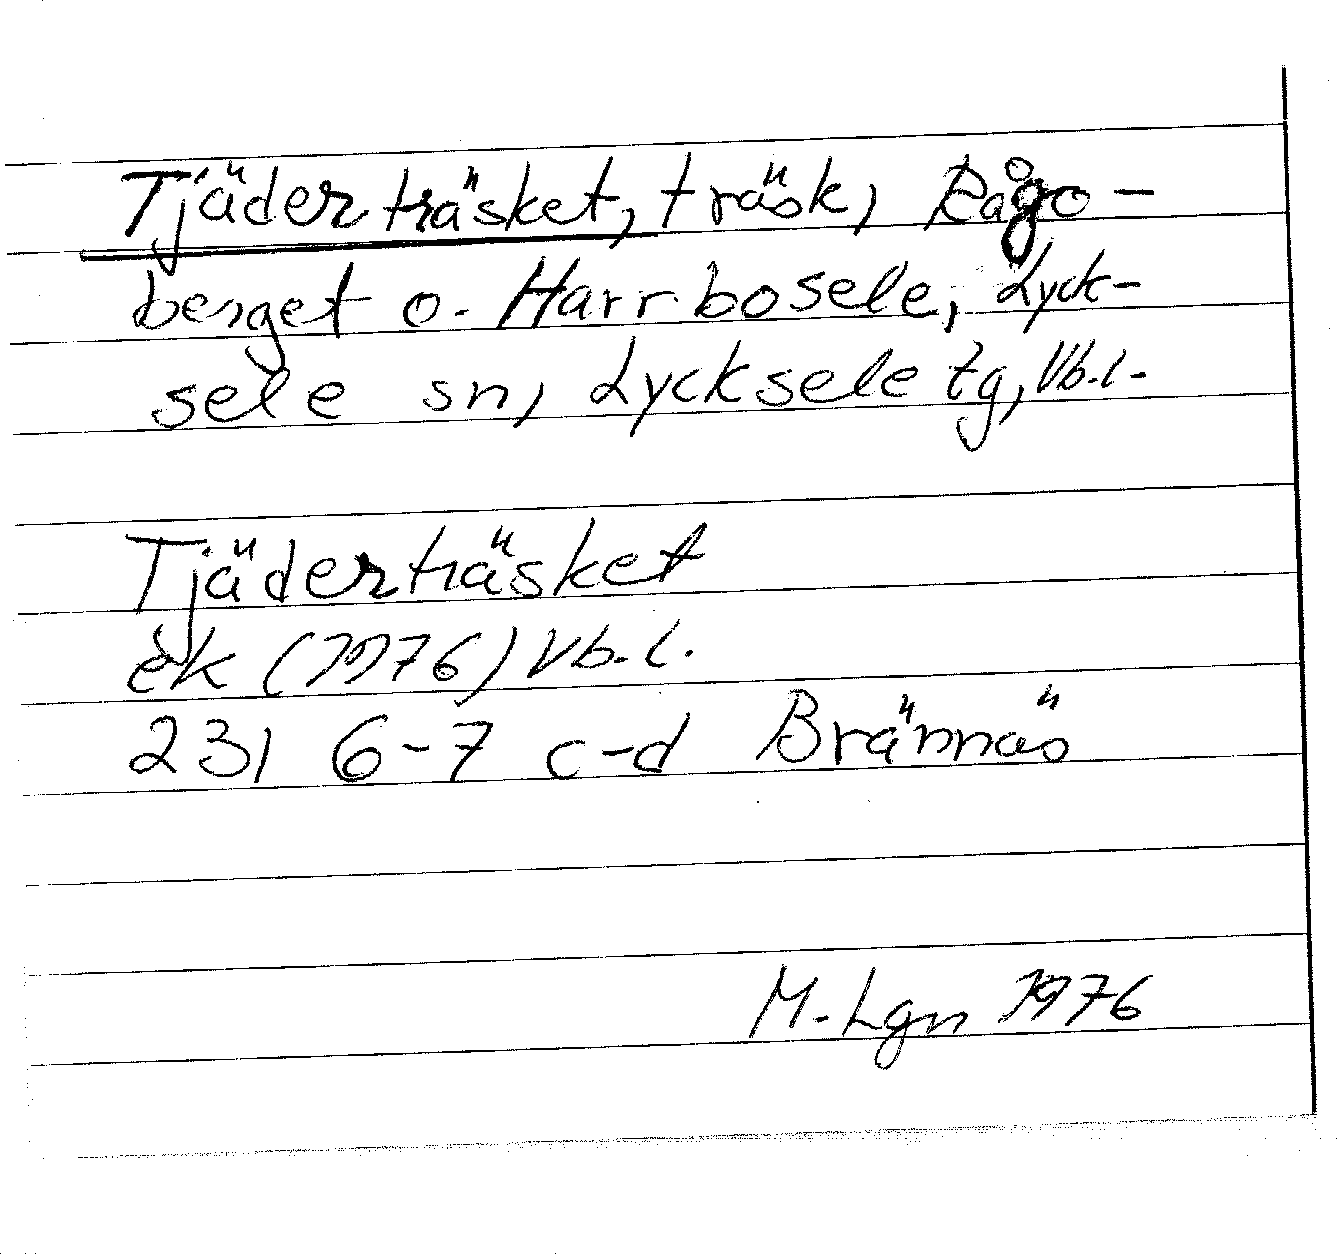 Tjäderträsket, träsk, Rågo-
berget o. Harrbosele, Lyck-
sele sn, Lycksele tg, Vb.l.
Tjäderträsket
ek (1976) Vb.l.
231 6-7 c-d Brännäs
M. Lgn 1976